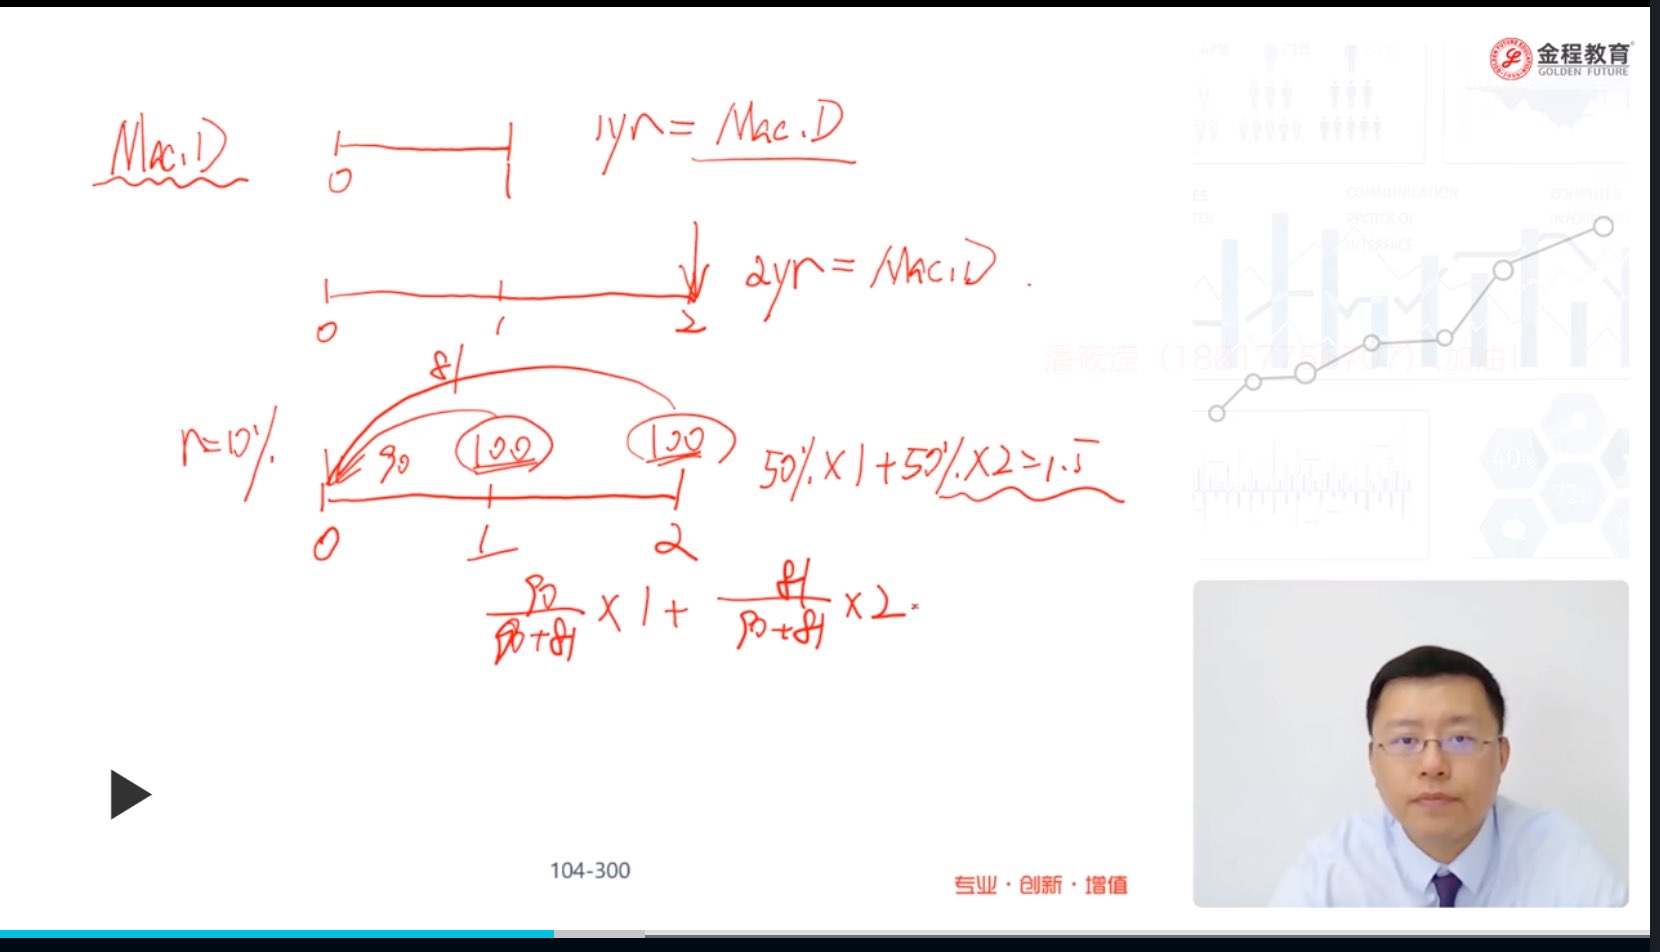 金程教育
GOLDEN FUTURE
Mac.D
0 1
1yr = Mac.D
0 1 2
2yr = Mac.D.
r=10%
81
90 100 100
0 1 2
50%×1+50%×2=1.5
90/(90+81) ×1+ 81/(90+81) ×2
COMMUNICATION
PROTOCOL
INTERFACE
40%
72%
104-300
专业·创新·增值